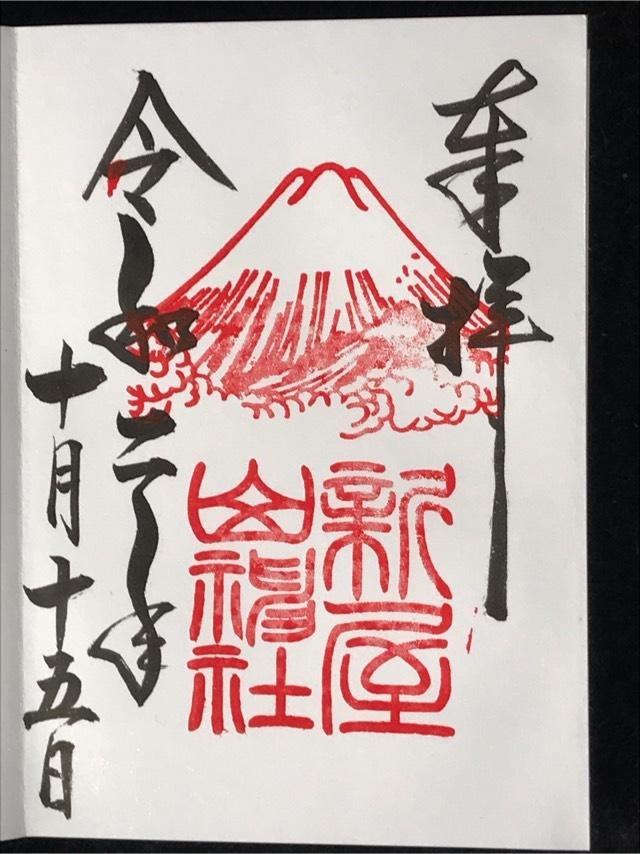 奉拝
新屋
山神社
令和二年
十月十五日